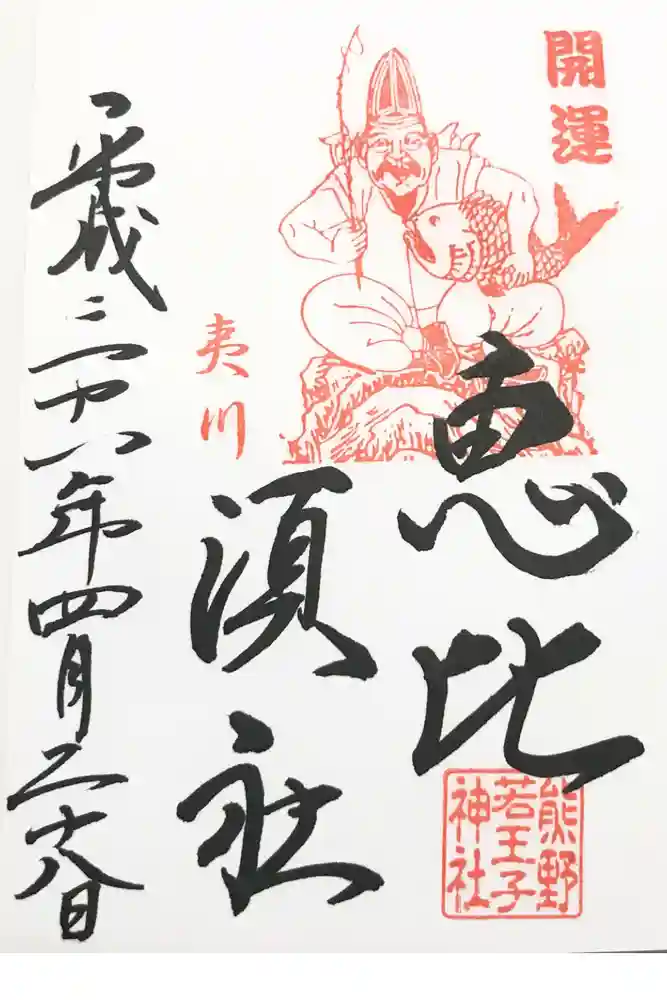 開運
恵比
須社
夷川
平成二十八年四月二十八日
熊野
若王子
神社